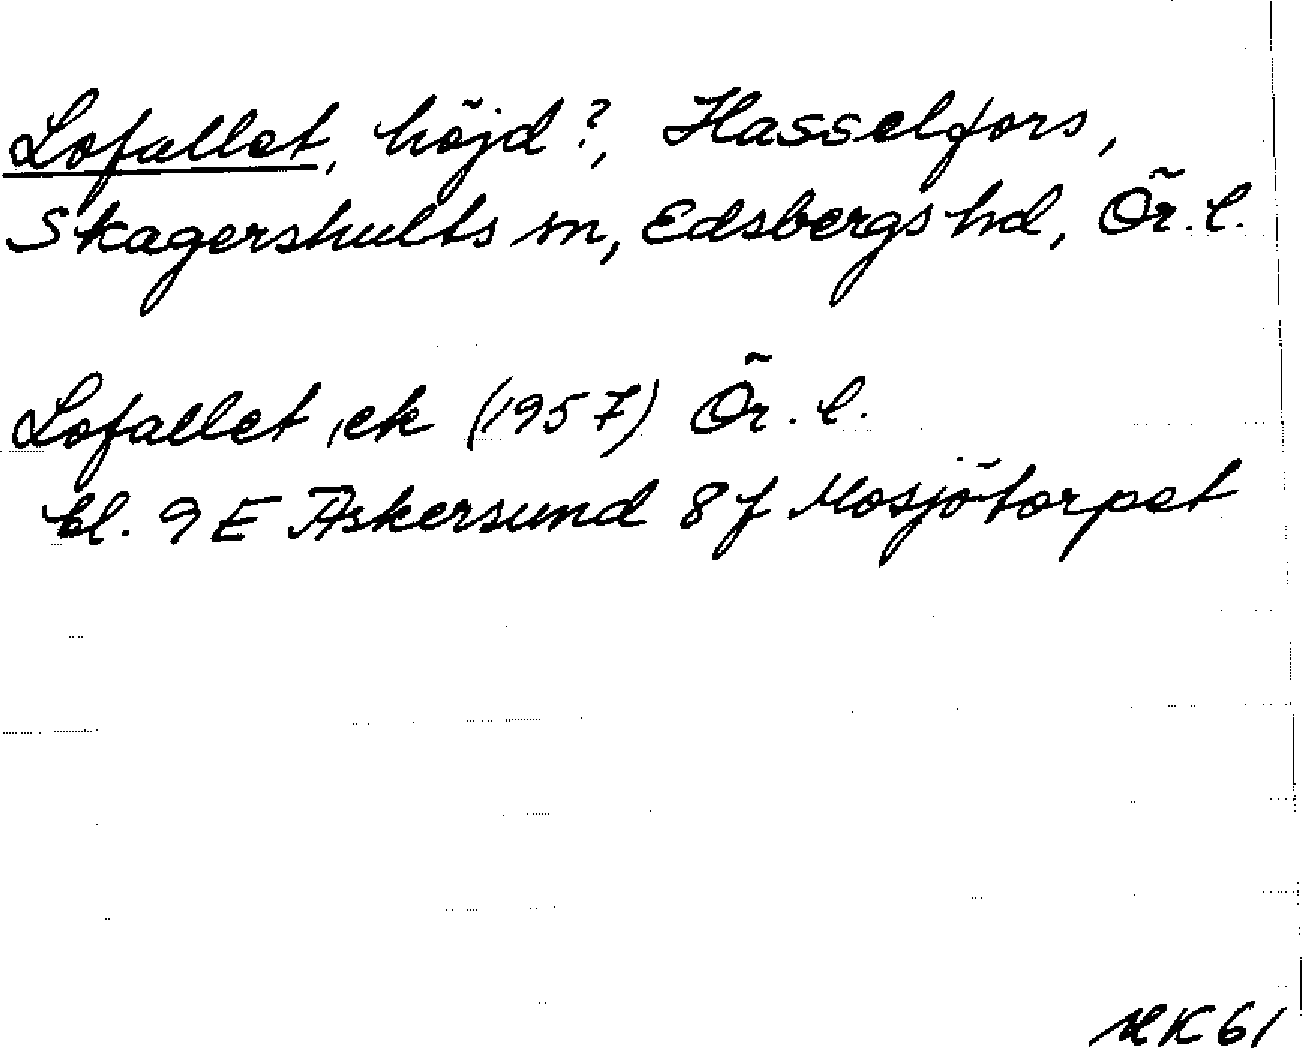 Lofallet, höjd?, Hasselfors,
Skagershults sn, Edsbergs hd, Ör. l.
Lofallet, ek (1957) Ör. l.
bl. 9 E Askersund 8 f Mosjötorpet
HK 61